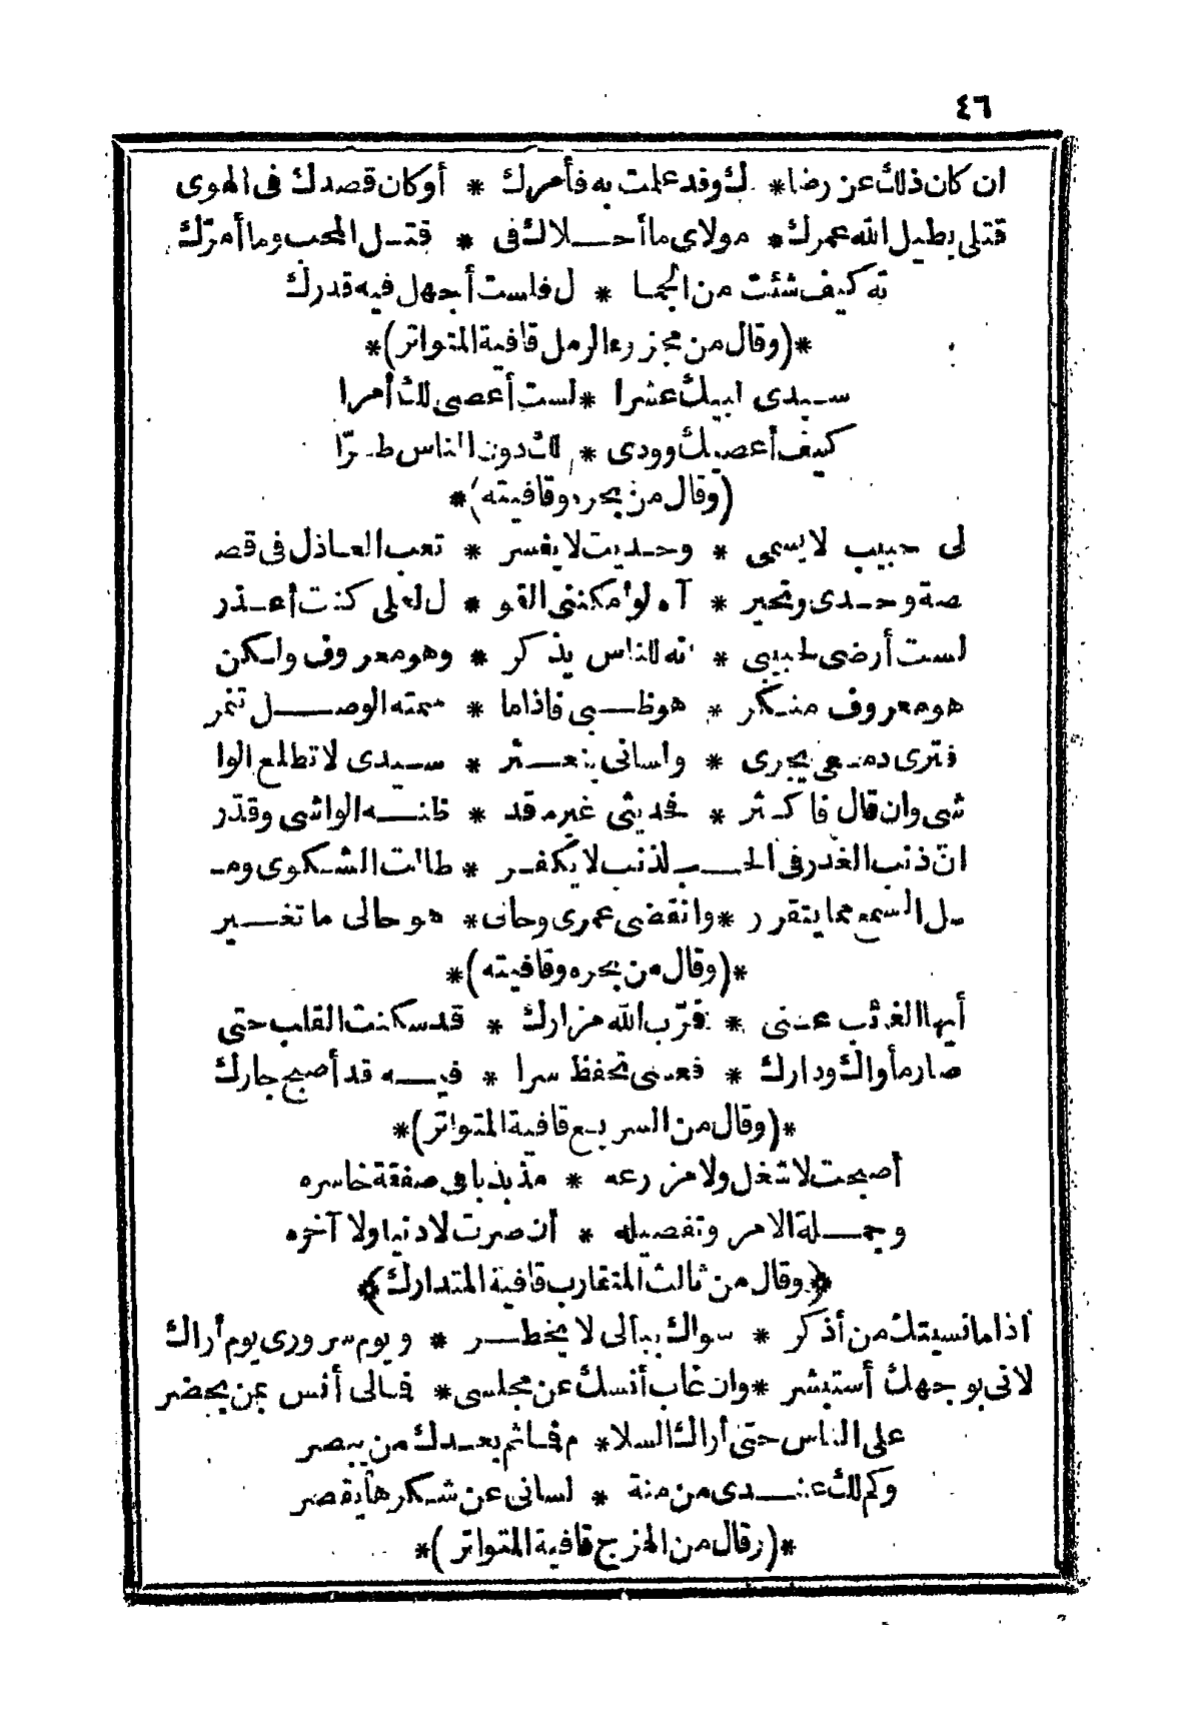 ٤٦
ان كان ذلك عن رضا* لك وقد علمت به فأمرك * أوكان قصدك فى الهوى
قتلى يطيل الله عمرك* مولاى ما أحـلاك فى * قتـل المحب وما أمرّك
ته كيف شئت من الجما * ل فلست أجهل فيه قدرك
*(وقال من مجزوء الرمل قافية المتواتر)*
سـيدى لبيك عشرا *لست أعصى لك أمرا
كيف أعصيك وودى * لك دون الناس طـرّا
(وقال من بحره وقافيته)*
لى حبيب لا يسمى * وحـديث لا يفسر * تعب العاذل فى قص
صة وحـدى وتحير * آه لو أمكننى القو * ل لعلى كنت أعـذر
لست أرضى لحبيبى * انه للناس يذكر * وهو معروف ولكن
هو معروف منـكر * هو ظـبى فاذا ما * سمته الوصـل تنمر
فترى دمـعى يجرى * ولسانى يتعـثر * سـيدى لا تطلع الوا
شى وان قال فاكـثر * فحديثى غيرمه قد * ظنـه الواشى وقدّر
انّ ذنب الغدر فى الحـب لذنب لا يكفـر * طالت الشـكوى ومـ
ـل السمع مما يتقرر *وانقضى عمرى وحالى* هو حالى ما تغـير
*(وقال من بحره وقافيته)*
أيها الغائب عـنى * قرّب الله مزارك * قد سكنت القلب حتى
صار مأواك ودارك * فعسى تحفظ سرا * فيـه قد أصبح جارك
*(وقال من السريع قافية المتواتر)*
أصبحت لا شغل ولا مزرعه * مذبذبا فى صفقة خاسره
وجـملة الامر وتفصيله * أن صرت لا دنيا ولا آخره
﴿وقال من ثالث المتقارب قافية المتدارك﴾
اذا ما نسيتك من أذكر * سواك ببالى لا يخطـر * ويوم سرورى يوم أراك
لانى بوجهك أستبشر *وان غاب أنسك عن مجلسى* فمالى أنس بمن يحضر
على الناس حتى أراك السلا* م فما ثم بعـدك من يبصر
وكم لك عنـدى من منة * لسانى عن شـكرها يقصر
*(وقال من الهزج قافية المتواتر)*